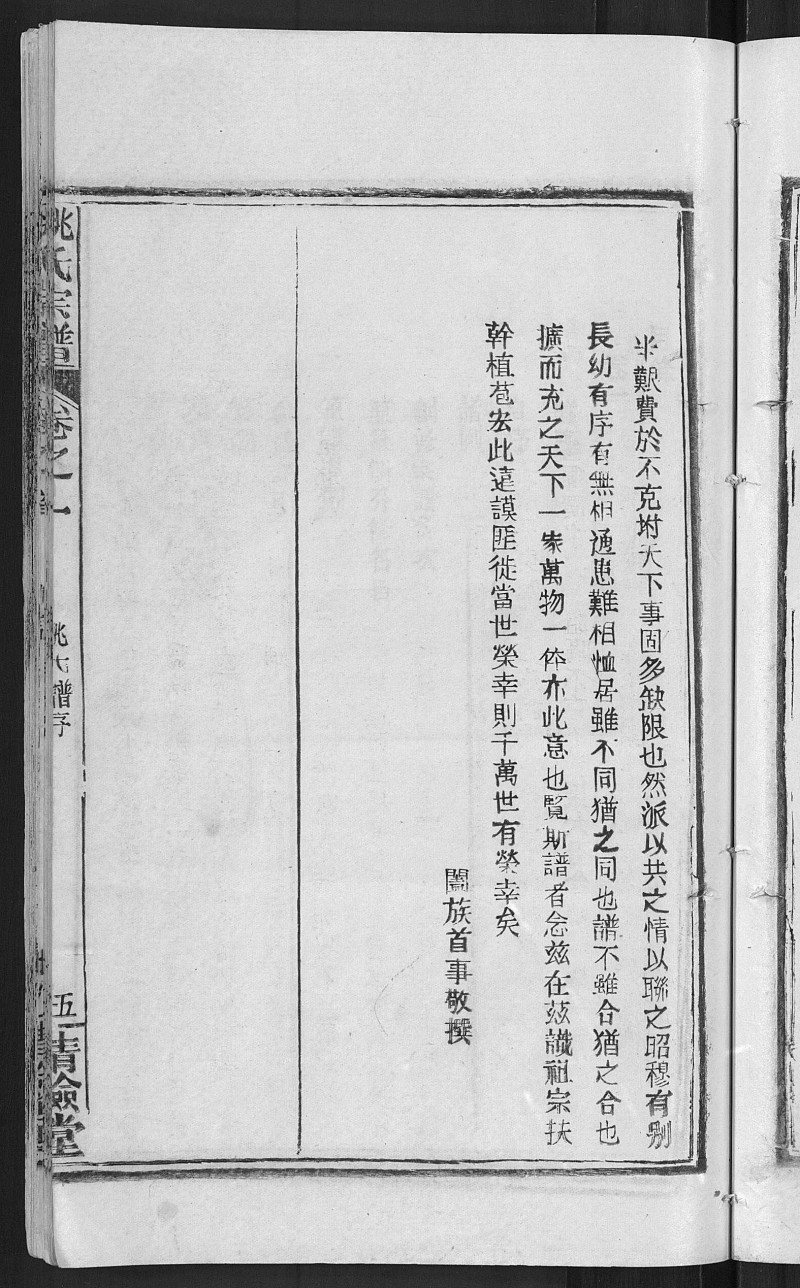 半艱費於不克坿天下事固多缺限也然派以共之情以聯之昭穆有别
長幼有序有無相通患難相恤居雖不同猶之同也譜不雖合猶之合也
擴而充之天下一家萬物一体亦此意也覽斯譜者念兹在兹識祖宗扶
幹植苞宏此遠謨匪徙當世榮幸則千萬世有榮幸矣
闔族首事敬撰
姚氏宗譜
卷之一
姚氏譜序
五
清儉堂